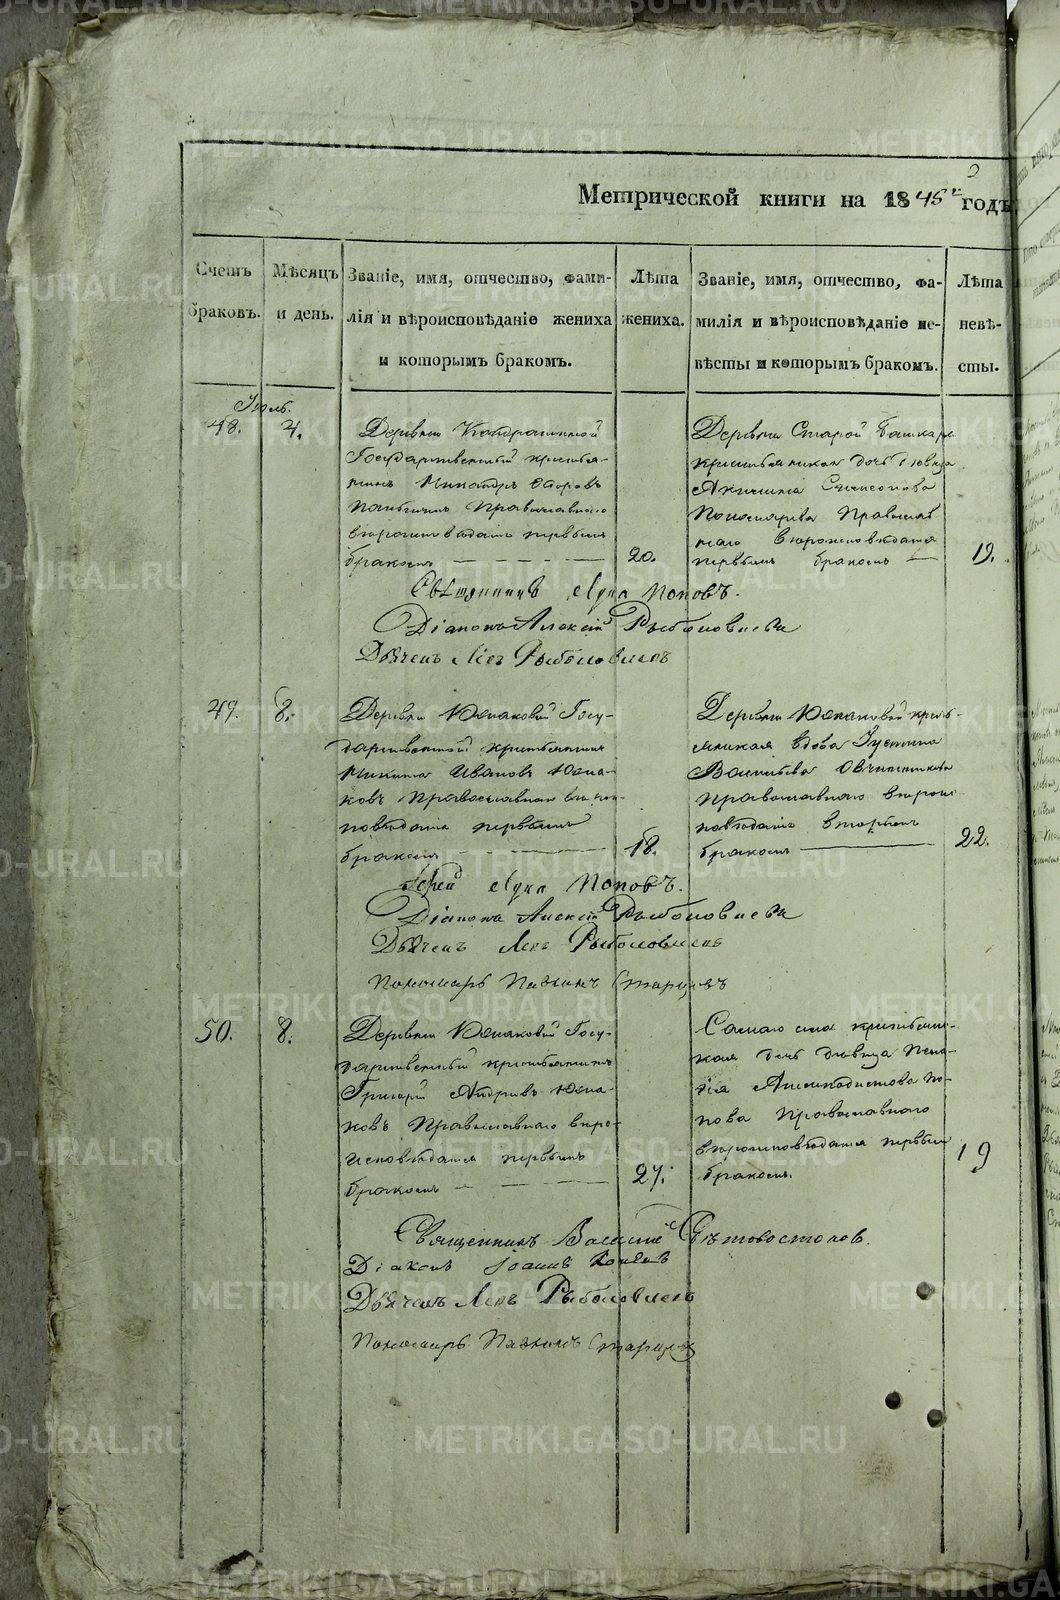 Метрической книги на 1845й годъ
Счетъ браковъ.
Мѣсяцъ и день.
Званіе, имя, отчество, фами-
лія и вѣроисповѣданіе жениха
и которымъ бракомъ.
Лѣта
жениха.
Званіе, имя, отчество, фа-
милія и вѣроисповѣданіе не-
вѣсты и которымъ бракомъ.
Лѣта
невѣ-
сты.
Іюль.
48.
4.
Деревни
Государственный крестья-
нинъ Егоровъ
Православнаго
вѣроисповѣданія первымъ
бракомъ
20.
Деревни Старой Башкар
крестьянская дочь девица
Православ
наго вѣроисповѣданія
первымъ бракомъ
19.
Священникъ Лука Поповъ.
Діаконъ Алексій Рыболовлевъ
Дьячекъ Левъ Рыболовлевъ
49.
8.
Деревни Юшаковой Госу-
дарственной крестьянинъ
Никита Ивановъ Юша-
ковъ Православнаго вѣроис-
повѣданія первымъ
бракомъ
18.
Деревни Юшаковой кресть-
янская вдова Іустина
Васильева Овчинникова
православнаго вѣроис
повѣданія вторымъ
бракомъ
22.
Іерей Лука Поповъ.
Діаконъ Алексій Рыболовлевъ
Дьячекъ Левъ Рыболовлевъ
Пономарь Старцевъ
50.
8.
Деревни Юшаковой Госу-
дарственный крестьянинъ
Григорій Юша-
ковъ Православнаго вѣро-
исповѣданія первымъ
бракомъ
27.
Самаго села крестьянс-
кая дочь девица Пела-
гія По-
пова Православнаго
вѣроисповѣданія первым
бракомъ.
19
Священникъ Василій Свѣтовостоковъ.
Діаконъ Іоаннъ
Дьячекъ Левъ Рыболовлевъ
Пономарь Старцевъ
METRIKI.GASO-URAL.RU